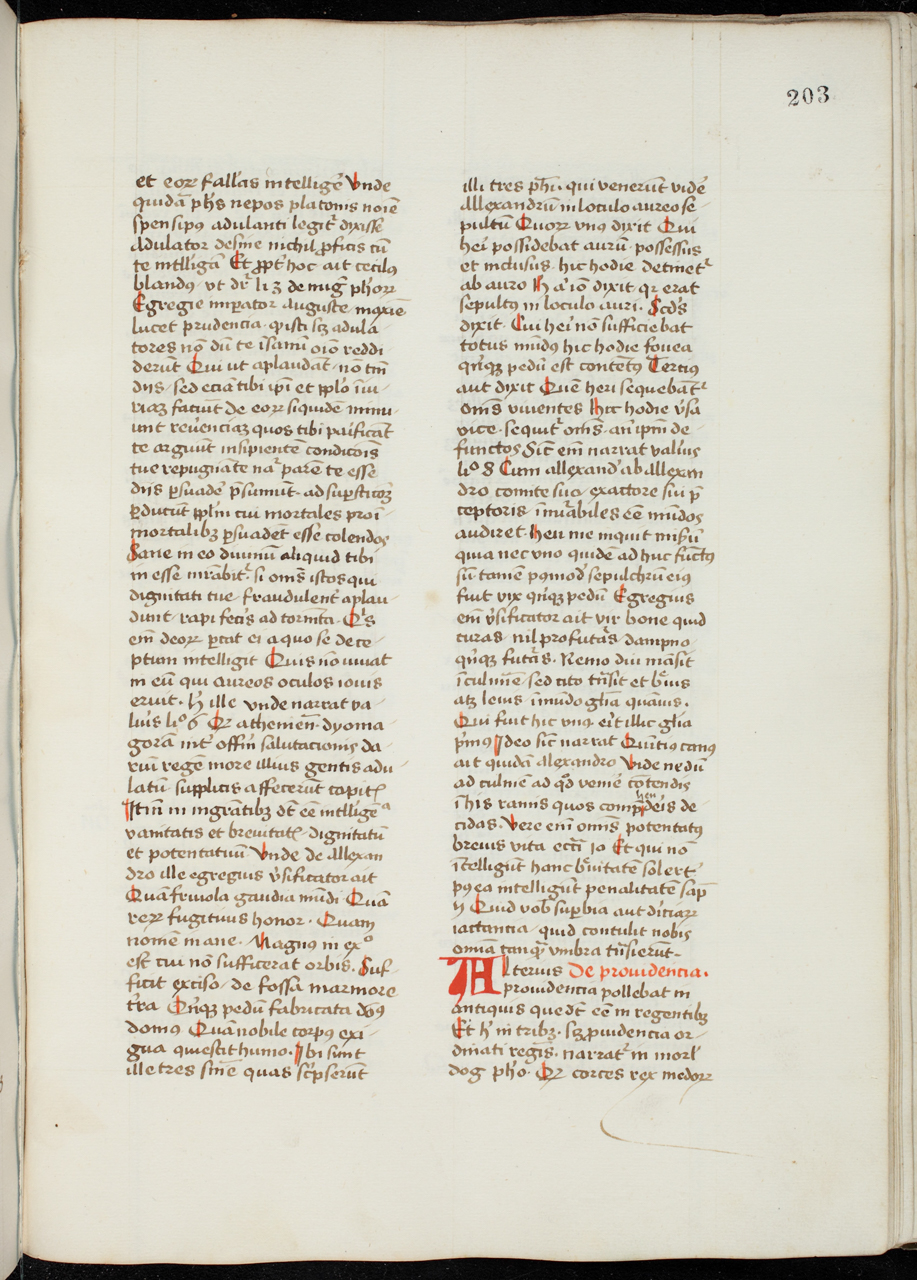 203
et eoꝝ fallīas intelligē Unde
quidā phꝰs nepos platonis noīe
spensipꝰ adulanti legitᷣ dyxisse
Adulator desine nichil ꝓficis cū
te intlligā Et ꝓpt̓ hoc ait cecilꝰ
blandꝰ · ut dr̄ li 3 de mig phoꝝ
Egregie inꝑator auguste maxīe
lucet prudencia · qͥ isti scꝫ adula
tores nō dū te īsanū oīo reddi
derūt Qui ut aplaudāt · nō tm̄
diis · sed eciā tibi ipī et pplo īiu
riaꝫ faciūt de eoꝝ siquidē minu
unt reuēnciaꝫ quos tibi paificāt
te arguūt insipientē condicōis
tue repugnāte naᷓ parē te esse
diis ꝑsuadē p̄sumūt · ad suꝑsticōꝫ
ꝑducūt pplm̄ cui mortales pro ī
mortalibꝫ ꝑsuadēt esse colendos
Sane in eo diuinū aliquid tibi
in esse mr̄abit᷑ · si om̄s istos qui
dignitati tue fraudulent̓ aplau
dunt · rapi feciˢ ad tormēta · Qͥs
em̄ deoꝝ ꝑcat ei a quo se dece
ptum intelligit Quis nō uiuat
in eū qui aureos oculos iouis
eruit · h̓ ille unde narrat va
lēius liº 6 Qꝝ athenien̄ dyoma
gorā int̓ offīn salutacionis da
riū regē more illius gentis adu
latū suppliciis affecerūt capit
Itm̄ in ingrātibꝫ dt̄ eē intlligēᵃ
vanitatis et breuitatꝭ dignitatū
et potentatuū Unde de allexan
dro ille egregius v̓sificator ait
Quā friuola gaudia mūdi · Quā
reꝝ fugitiuus honor · Quam
nomē inane · Magnus in exº
est cui nō sufficerat orbis · Suf
ficit exciso · de fossa marmore
tr̄a Qͥnqꝫ pedū fabricata dōꝰ
domꝰ Quā nobile corpus exi
gua quiescit humo · Ibi sunt
ille tres sīnē quas sc̓pserūt
illi tres phī · qui venerūt vidē
Allexandrū in loculo aureo se
pultū Quoꝝ vnꝰ dyxit Qui
heī possidebat aurū · possessus
et inclusus · hic hodie detinetᷣ
ab auro hᷓ ā īom dixit qꝛ erat
sepultꝰ in loculo auri · Scd̓s
dyxit · Cui heī nō sufficiebat
totus mūdꝰ hic hodie fouea
qͥnqꝫ pedū est contentꝰ Tercius
aut dixit Quē heri sequebātᷣ
om̄s viuentes hic hodie v̓sa
vice · sequitᷣ om̄s · an ipm̄ de
functos Sic em̄ narrat valīius
liº 8 Cum allexand̓ ab allexan
dro comite suo · exactore sui p̄
ceptoris · inuᷓabiles eē mūdos
audiret · heu me inquit mis̓ū
quia nec vno quidē ad huc fūctꝰ
sū · tamē pꝰmod̓ sepulchrū eiꝰ
fuit vix qͥnqꝫ pedū Egregius
em̄ v̓sificator ait vir bone quid
curas · nil profutāˢ · dampno
qͥnqꝫ futāˢ · Nemo diu māsit
ī culmīe sed cito trāsit et b̓uis
atꝫ leuis · ī mūdo glīa quāuis ·
Qui fuit hic vnqͣ · eīt illic glīa
pͥmꝰ Ideo sic̄ narrat Quītiꝰ canꝰ
ait quidā alexandro Unde nedū
ad culmē ad qd̓ venīē cōtendis
ī his ramis quos comp̄heudeis de
cidas · Vere em̄ om̄s potentatꝰ
breuis vita · eccī 10 Et qui nō
ītelligūt hanc b̓uitatē solert̓
pꝰ ea intelligūt penalitatē sap̄
5 Quid vob̓ suꝑbia aut diciaꝝ
iactancia · quid contulit nobis
omīa tanqͣ umbra trāsierūt ·
Alterius De prouidencia ·
prouidencia pollebat in
antiquis que dt̄ eē in regentibꝫ
Et h̓ in tribꝫ · scꝫ ꝓuidencia or
dinati regīs · narratᷣ in morl̓
dog phº · Qꝝ corces rex medoꝝ